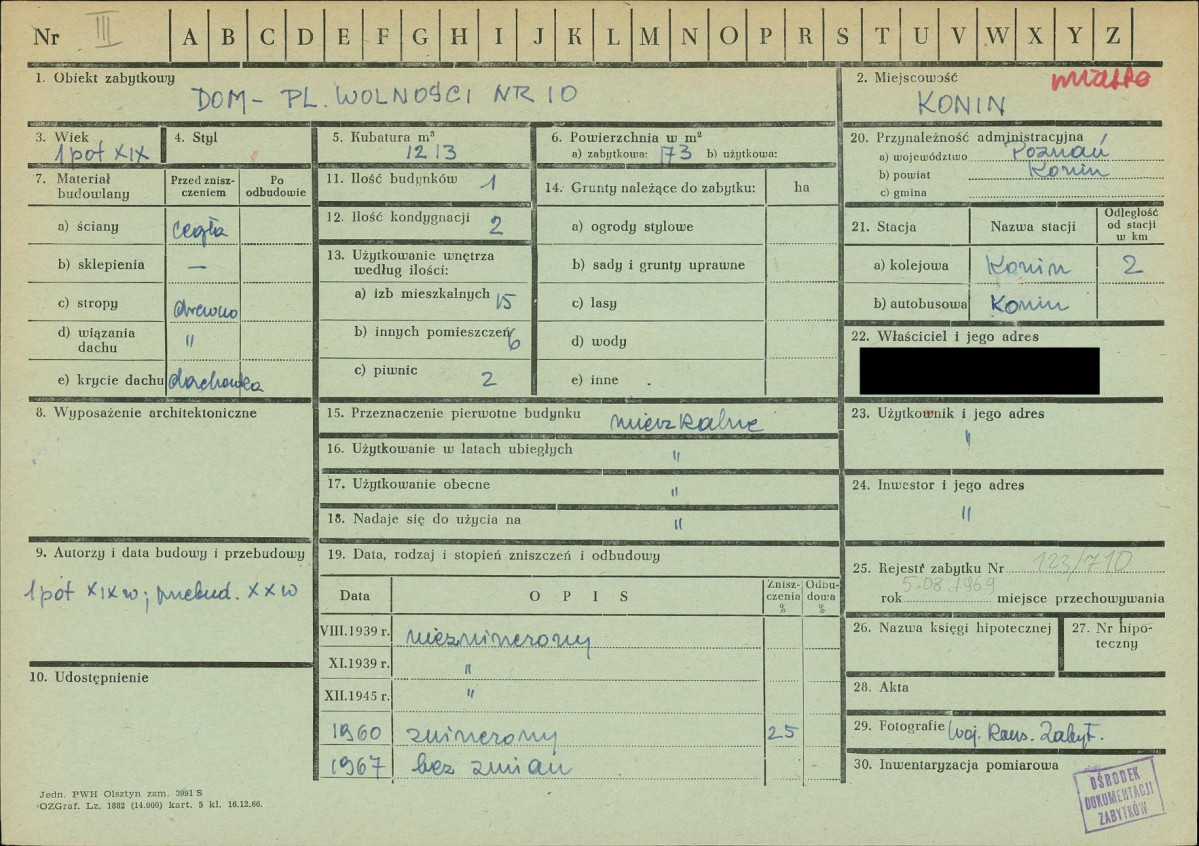 Nr III A B C D E F G H I J K L M N O P R S T U V W X Y Z
1. Obiekt zabytkowy
DOM - PL. WOLNOŚCI NR 10
2. Miejscowość
miasto
KONIN
3. Wiek
1 poł XIX
4. Styl
5. Kubatura m³
1213
6. Powierzchnia w m²
a) zabytkowa: 173 b) użytkowa:
20. Przynależność administracyjna
a) województwo Poznań
b) powiat Konin
c) gmina
7. Materiał budowlany
Przed zniszczeniem
Po odbudowie
a) ściany cegła
b) sklepienia —
c) stropy drewno
d) wiązania dachu "
e) krycie dachu dachówka
11. Ilość budynków 1
12. Ilość kondygnacji 2
13. Użytkowanie wnętrza według ilości:
a) izb mieszkalnych 15
b) innych pomieszczeń 6
c) piwnic 2
14. Grunty należące do zabytku: ha
a) ogrody stylowe
b) sady i grunty uprawne
c) lasy
d) wody
e) inne
21. Stacja Nazwa stacji Odległość od stacji w km
a) kolejowa Konin 2
b) autobusowa Konin
22. Właściciel i jego adres
8. Wyposażenie architektoniczne
15. Przeznaczenie pierwotne budynku mieszkalne
16. Użytkowanie w latach ubiegłych "
17. Użytkowanie obecne "
18. Nadaje się do użycia na "
23. Użytkownik i jego adres
"
24. Inwestor i jego adres
"
9. Autorzy i data budowy i przebudowy
1 poł XIX w; przebud. XX w
10. Udostępnienie
19. Data, rodzaj i stopień zniszczeń i odbudowy
Data O P I S Zniszczenia % Odbudowa %
VIII.1939 r. niezniszczony
XI.1939 r. "
XII.1945 r. "
1960 zniszczony 25
1967 bez zmian
25. Rejestr zabytku Nr 123/710
rok 5.08.1969 miejsce przechowywania
26. Nazwa księgi hipotecznej
27. Nr hipoteczny
28. Akta
29. Fotografie Woj. Kons. Zabyt.
30. Inwentaryzacja pomiarowa
OŚRODEK
DOKUMENTACJI
ZABYTKÓW
Jedn. PWH Olsztyn zam. 3991 S
OZGraf. Lz. 1882 (14.000) kart. 5 kl. 16.12.66.